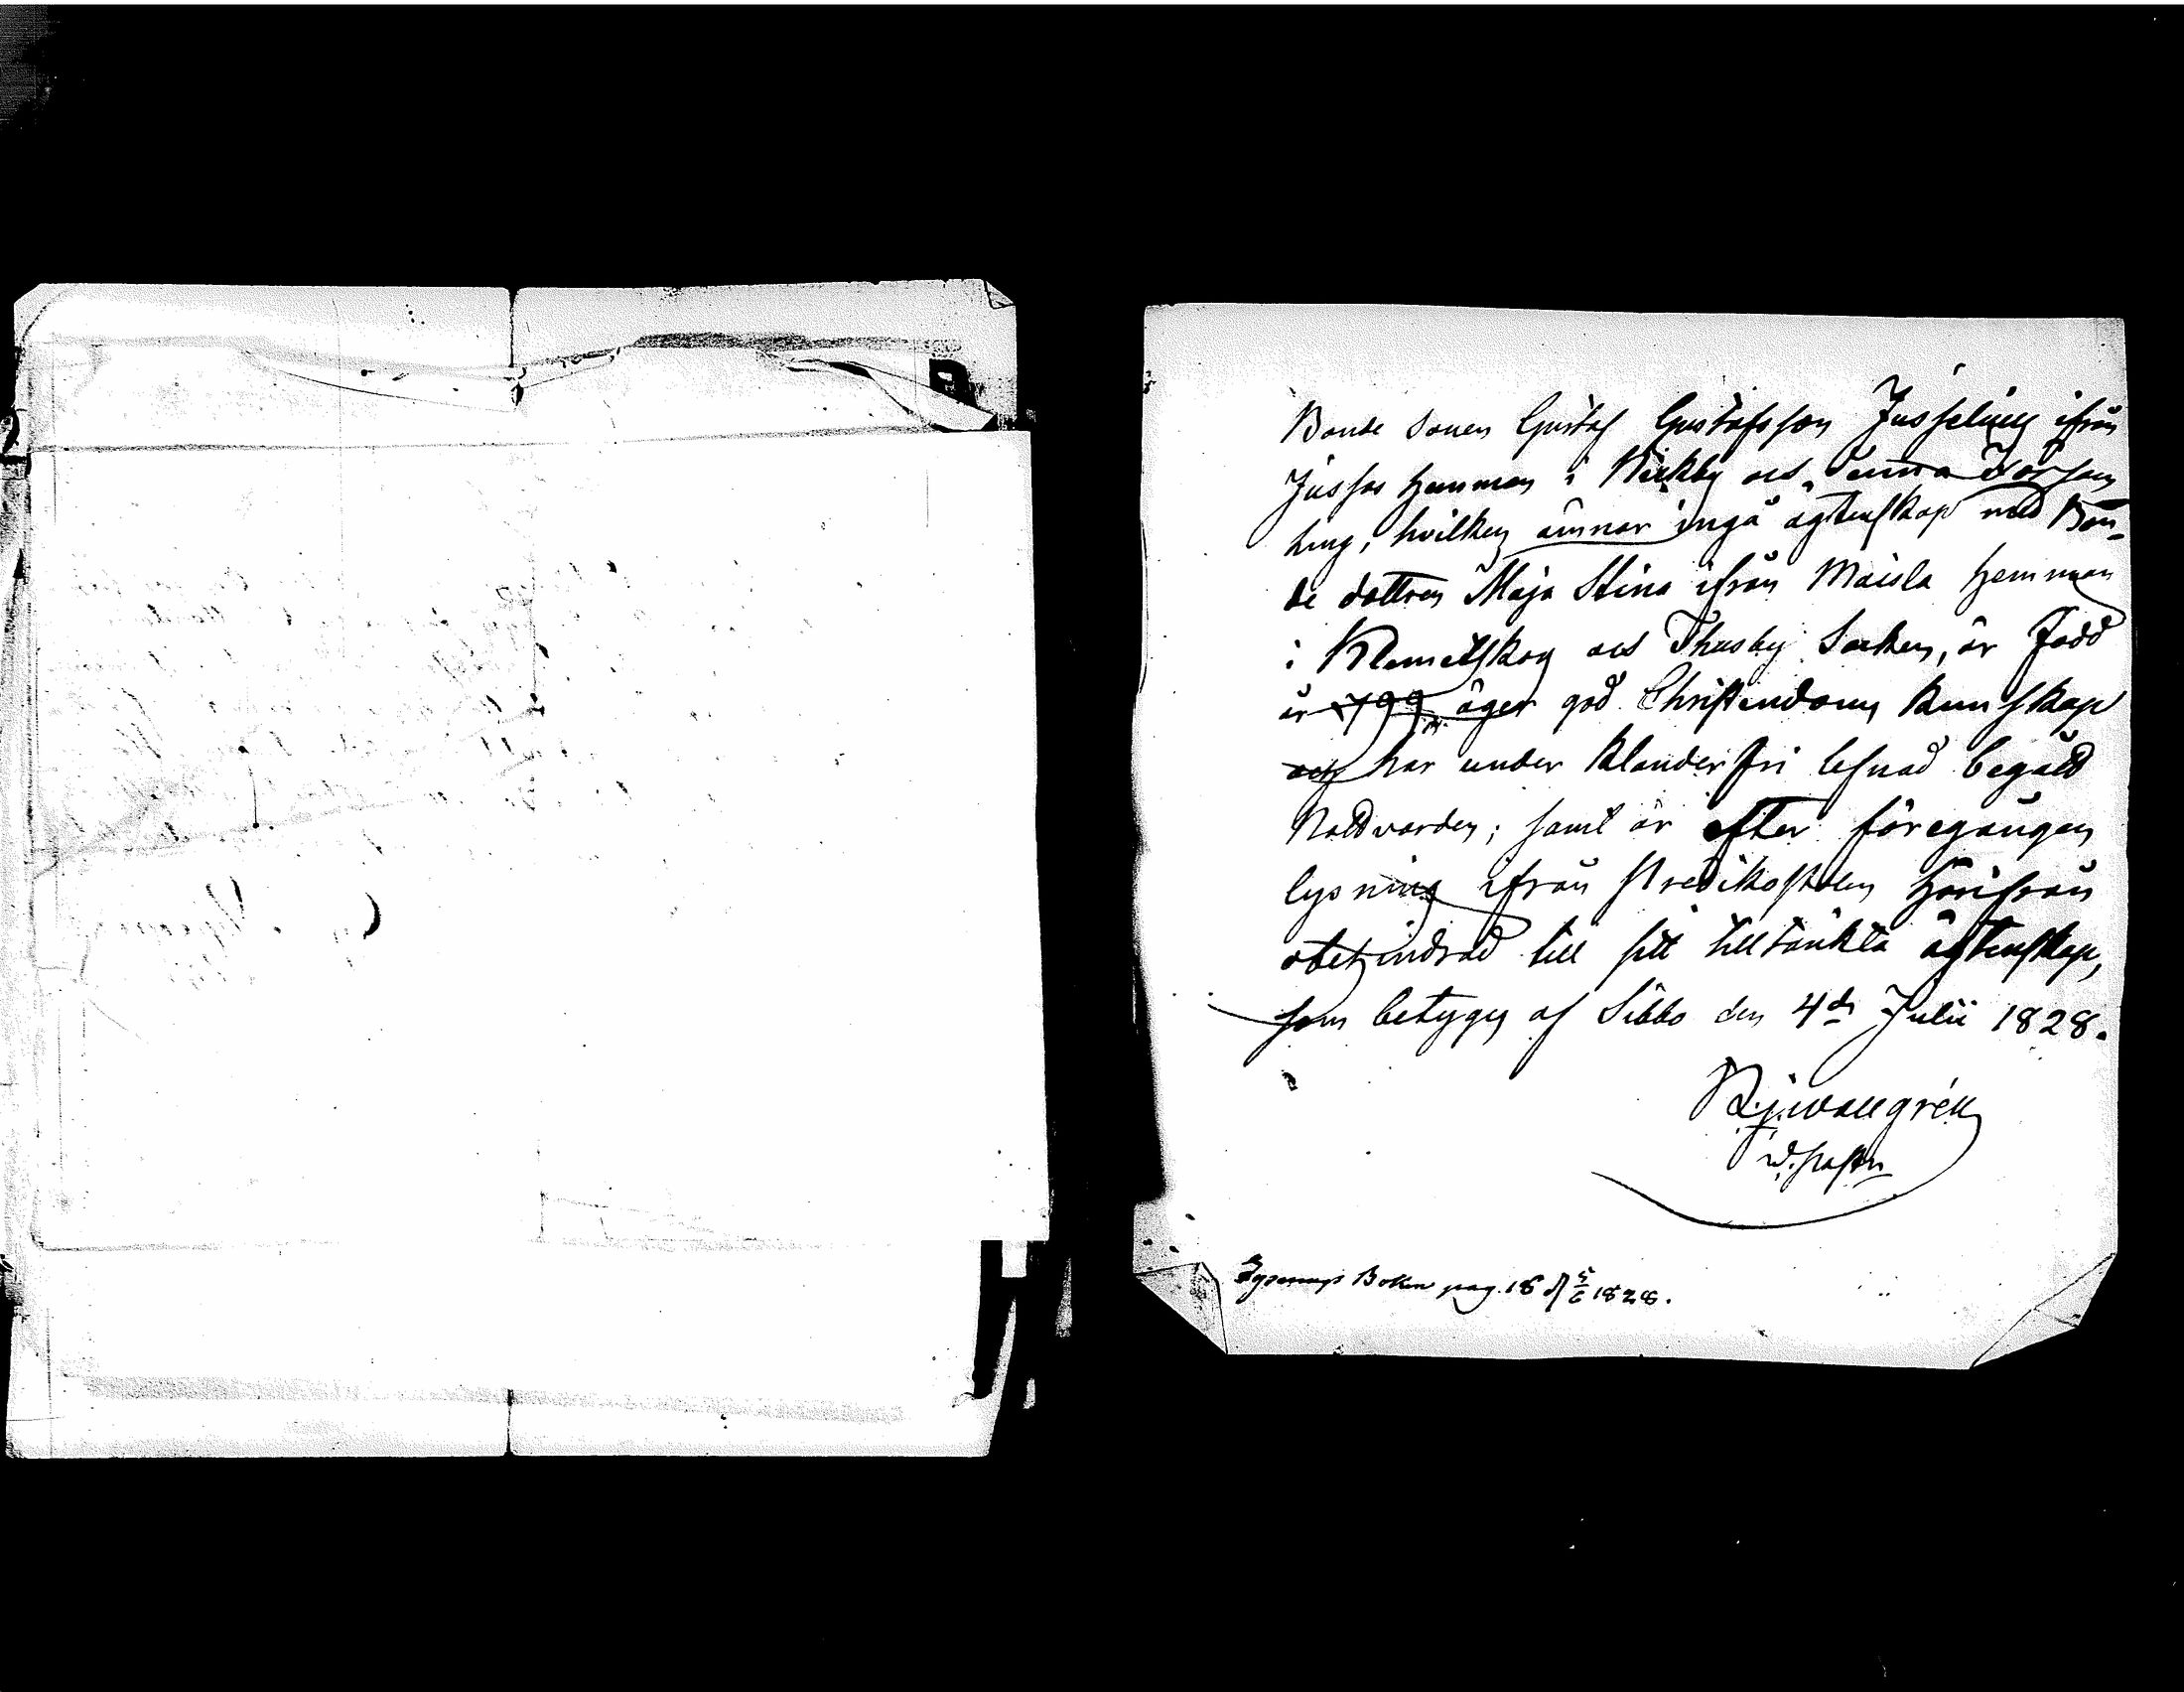 Bonde Sonen Gustaf Gustafsson Jusseling ifrån
Jussas Hemman i Nickby och denna Försam
ling, hvilken ämnar ingå ägtenskap med Bon-
de dottren Maja Stina ifrån Maisla Hemman
i Klemetskog och Thusby Socken, är född
år 1799, äger god Christendoms kunskap
och har under klanderfri lefnad begådt
Nattvarden; samt är efter föregången
lysning ifrån Predikostolen härifrån
obehindrad till sitt tilltänkta ägtenskap,
som betygas af Sibbo den 4de Julii 1828.
wallgrén
v. Pastor
Lysnings Boken pag. 18 1828.